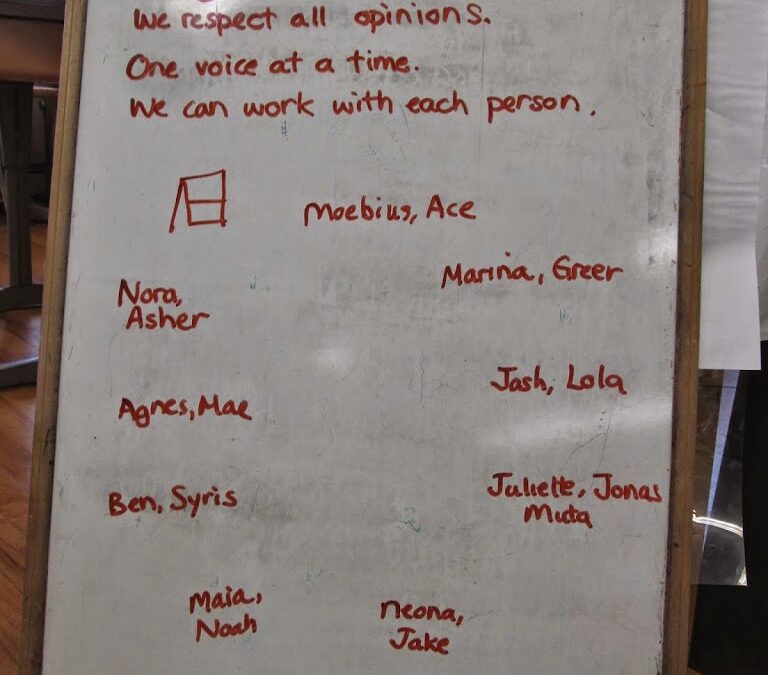 We respect all opinions.
One voice at a time.
We can work with each person.
Moebius, Ace
Marina, Greer
Nora,
Asher
Jash, Lola
Agnes, Mae
Ben, Syris
Juliette, Jonas
Muta
Maia,
Noah
Neona,
Jake